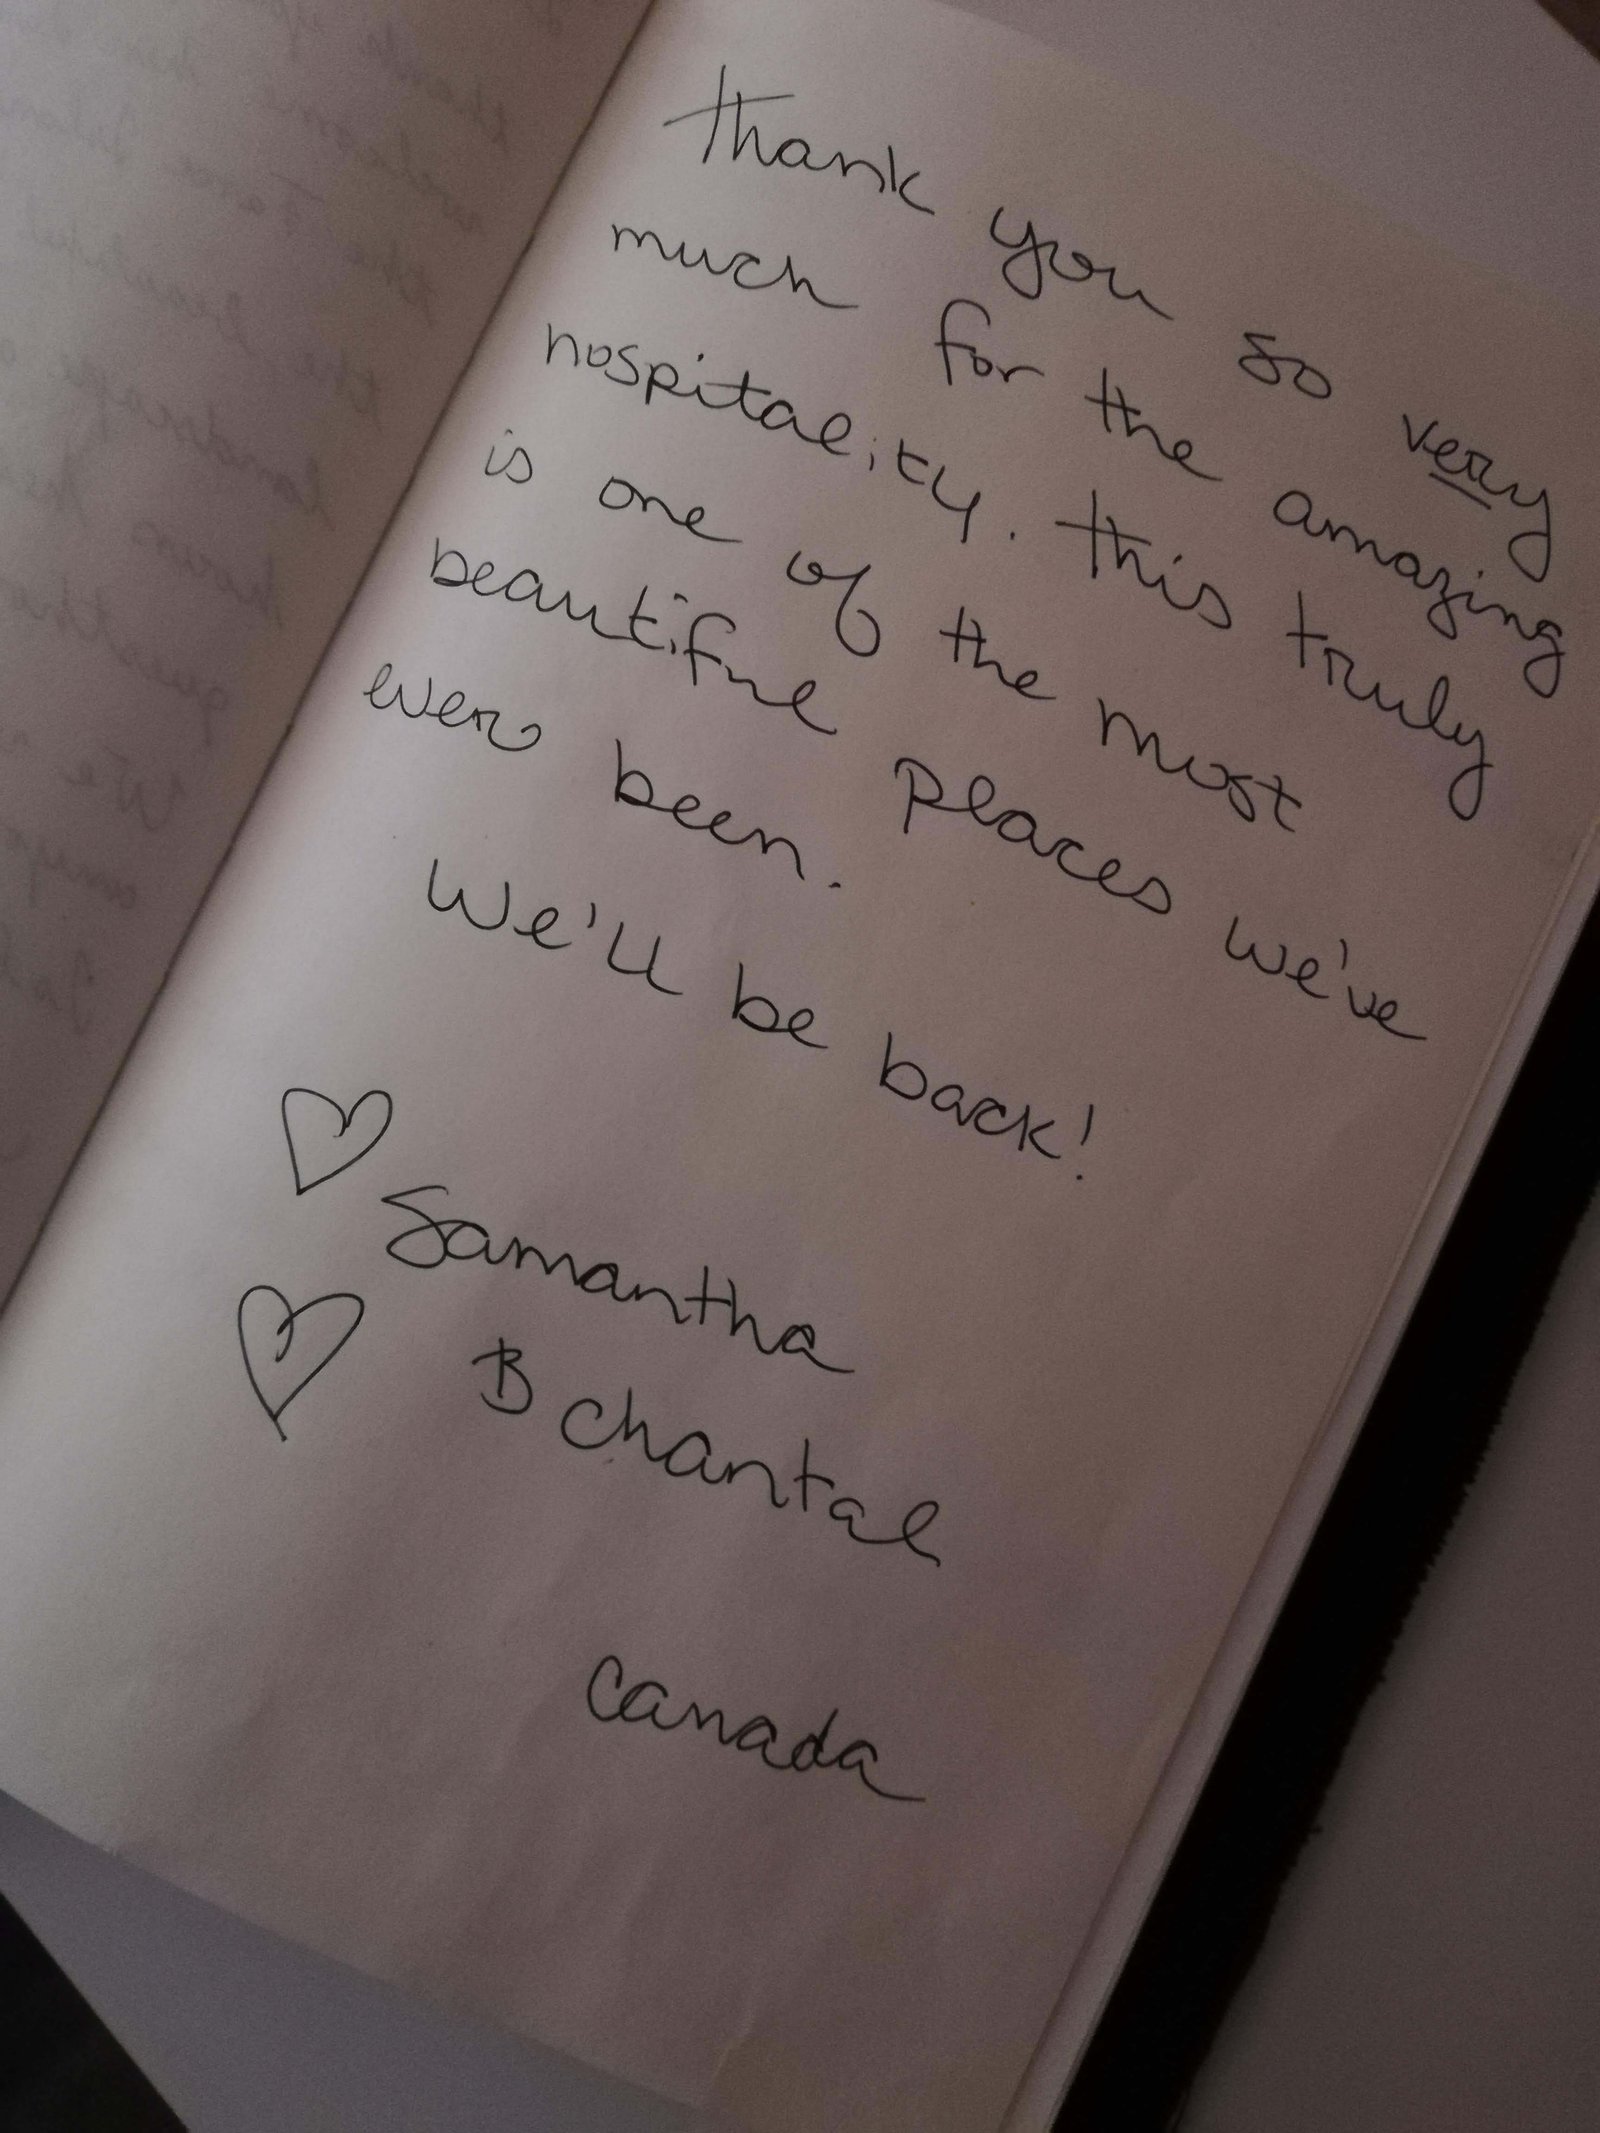 Thank you so very
much for the amazing
hospitality. This truly
is one of the most
beautiful places we've
ever been.
We'll be back!
Samantha
B Chantal
Canada